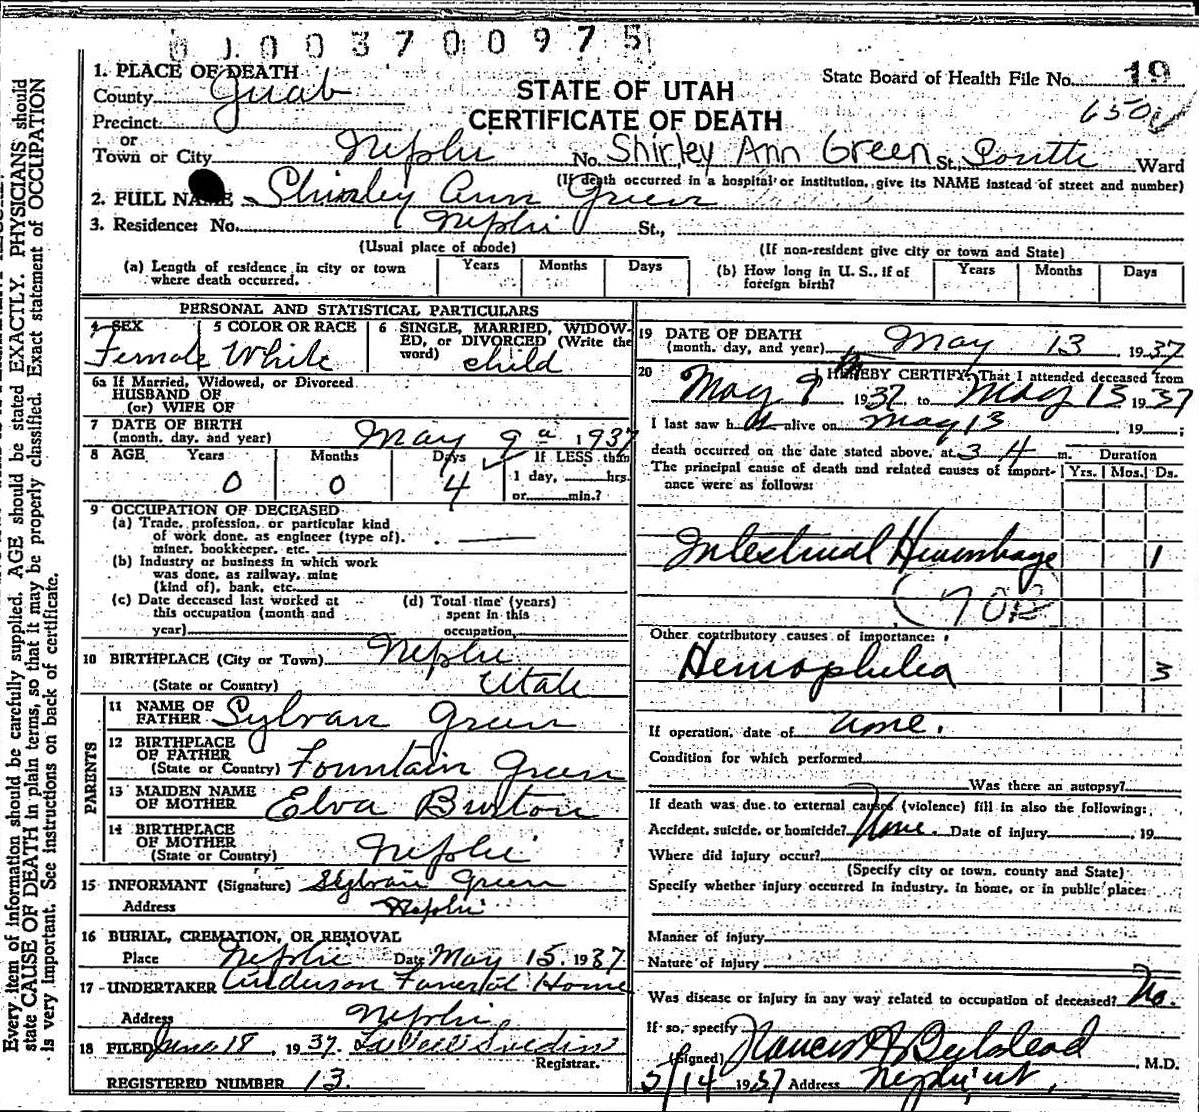 0 1 0 0 3 7 0 0 9 7 5
1. PLACE OF DEATH
County Juab
Precinct
or
Town or City Nephi No. Shirley Ann Green St. South Ward
STATE OF UTAH
CERTIFICATE OF DEATH
State Board of Health File No. 19
650
(If death occurred in a hospital or institution, give its NAME instead of street and number)
2. FULL NAME Shirley Ann Green
3. Residence: No. Nephi St.,
(Usual place of abode) (If non-resident give city or town and State)
(a) Length of residence in city or town where death occurred. Years Months Days
(b) How long in U. S., if of foreign birth? Years Months Days
PERSONAL AND STATISTICAL PARTICULARS
4 SEX Female
5 COLOR OR RACE White
6 SINGLE, MARRIED, WIDOWED, or DIVORCED (Write the word) child
6a If Married, Widowed, or Divorced
HUSBAND OF
(or) WIFE OF
7 DATE OF BIRTH
(month, day, and year) May 9 1937
8 AGE Years Months Days If LESS than
0 0 4 1 day, hrs.
or min.?
9 OCCUPATION OF DECEASED
(a) Trade, profession, or particular kind
of work done, as engineer (type of),
miner, bookkeeper, etc.
(b) Industry or business in which work
was done, as railway, mine
(kind of), bank, etc.
(c) Date deceased last worked at
this occupation (month and
year)
(d) Total time (years)
spent in this
occupation
10 BIRTHPLACE (City or Town) Nephi
(State or Country) Utah
PARENTS
11 NAME OF
FATHER Sylvan Green
12 BIRTHPLACE
OF FATHER
(State or Country) Fountain Green
13 MAIDEN NAME
OF MOTHER Elva Burton
14 BIRTHPLACE
OF MOTHER
(State or Country) Nephi
15 INFORMANT (Signature) Sylvan Green
Address Nephi
16 BURIAL, CREMATION, OR REMOVAL
Place Nephi Date May 15, 1937
17 - UNDERTAKER Anderson Funeral Home
Address Nephi
18 FILED June 18, 1937.
Registrar.
REGISTERED NUMBER 13.
19 DATE OF DEATH
(month, day, and year) May 13, 1937
20 I HEREBY CERTIFY, That I attended deceased from
May 9 1937, to May 13 1937
I last saw h alive on May 13 19 ;
death occurred on the date stated above, at 3 A m. Duration
The principal cause of death and related causes of importance were as follows: Yrs. Mos. Ds.
Intestinal Hemorrhage 1
Other contributory causes of importance:
Hemophilia 3
If operation, date of None.
Condition for which performed
Was there an autopsy?
If death was due to external causes (violence) fill in also the following:
Accident, suicide, or homicide? None. Date of injury , 19
Where did injury occur?
(Specify city or town, county and State)
Specify whether injury occurred in industry, in home, or in public place:
Manner of injury
Nature of injury
Was disease or injury in any way related to occupation of deceased? No.
If so, specify
(Signed) M.D.
5/14 1937 Address Nephi, Ut.
Every item of information should be carefully supplied. AGE should be stated EXACTLY. PHYSICIANS should
state CAUSE OF DEATH in plain terms, so that it may be properly classified. Exact statement of OCCUPATION
is very important. See instructions on back of certificate.